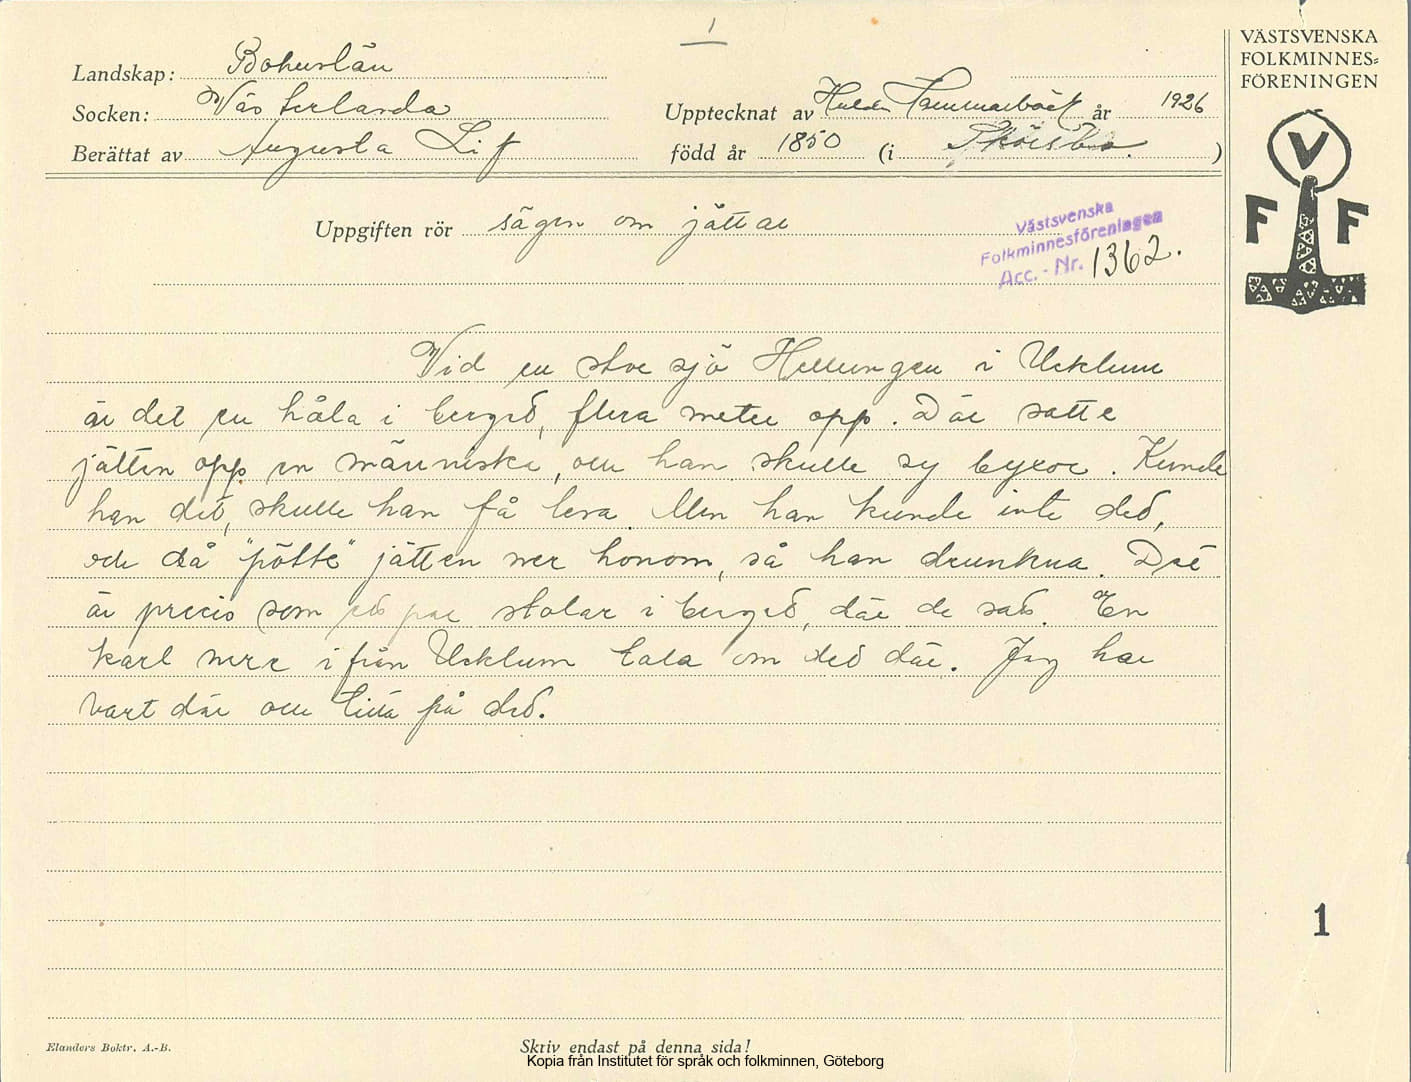 1
VÄSTSVENSKA
FOLKMINNES=
FÖRENINGEN
Landskap: Bohuslän
Socken: Västerlanda
Upptecknat av Hulda Hammarbäck år 1926
Berättat av Augusta Lif
född år 1850 (i )
V
F F
Uppgiften rör sägen om jättar
Västsvenska
Folkminnesföreningen
Acc. - Nr. 1362.
Vid en stor sjö Hällungen i Ucklum
är det en håla i berged, flera meter opp. Där satte
jätten opp en människa, och han skulle sy byxor. Kunde
han det, skulle han få leva. Men han kunde inte ded,
och då "pötte" jätten ner honom, så han drunkna. Det
är precis som ed par stolar i berged, där de sad. En
karl nere ifrån Ucklum tala om ded där. Jag har
vart där och titta på ded.
1
Elanders Boktr. A.-B.
Skriv endast på denna sida!
Kopia från Institutet för språk och folkminnen, Göteborg